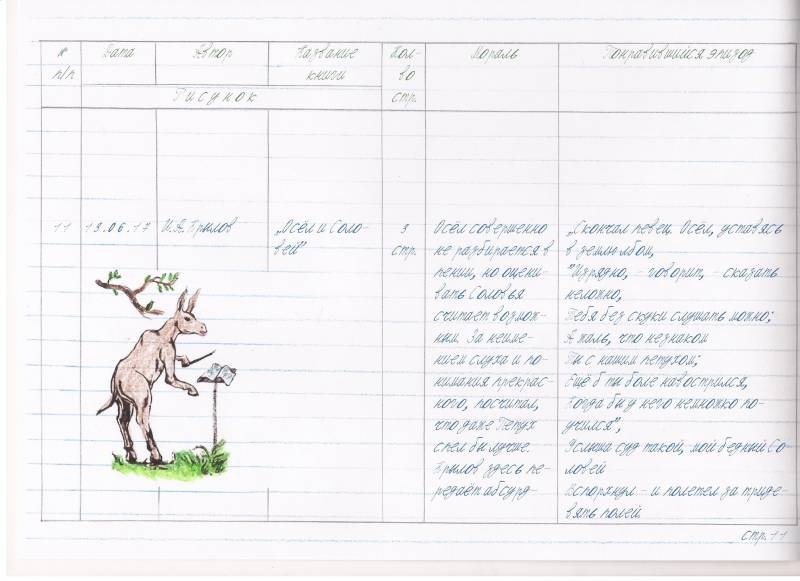 № п/п
Дата
Автор
Название книги
Кол-во стр.
Мораль
Понравившийся эпизод
Рисунок
11
13.06.17
И.А.Крылов
„Осёл и Соло-
вей"
3
стр.
Осёл совершенно
не разбирается в
пении, но оцени-
вать Соловья
считает возмож-
ным. За неиме-
нием слуха и по-
нимания прекрас-
ного, посчитал,
что даже Петух
спел бы лучше.
Крылов здесь пе-
редаёт абсурд-
„Скончал певец. Осёл, уставясь
в землю лбом,
"Изрядно, - говорит, - сказать
неложно,
Тебя без скуки слушать можно;
А жаль, что незнаком
Ты с нашим петухом;
Ещё б ты боле навострился,
Когда бы у него немножко по-
учился",
Услыша суд такой, мой бедный Со-
ловей
Вспорхнул - и полетел за триде-
вять полей.
стр. 11